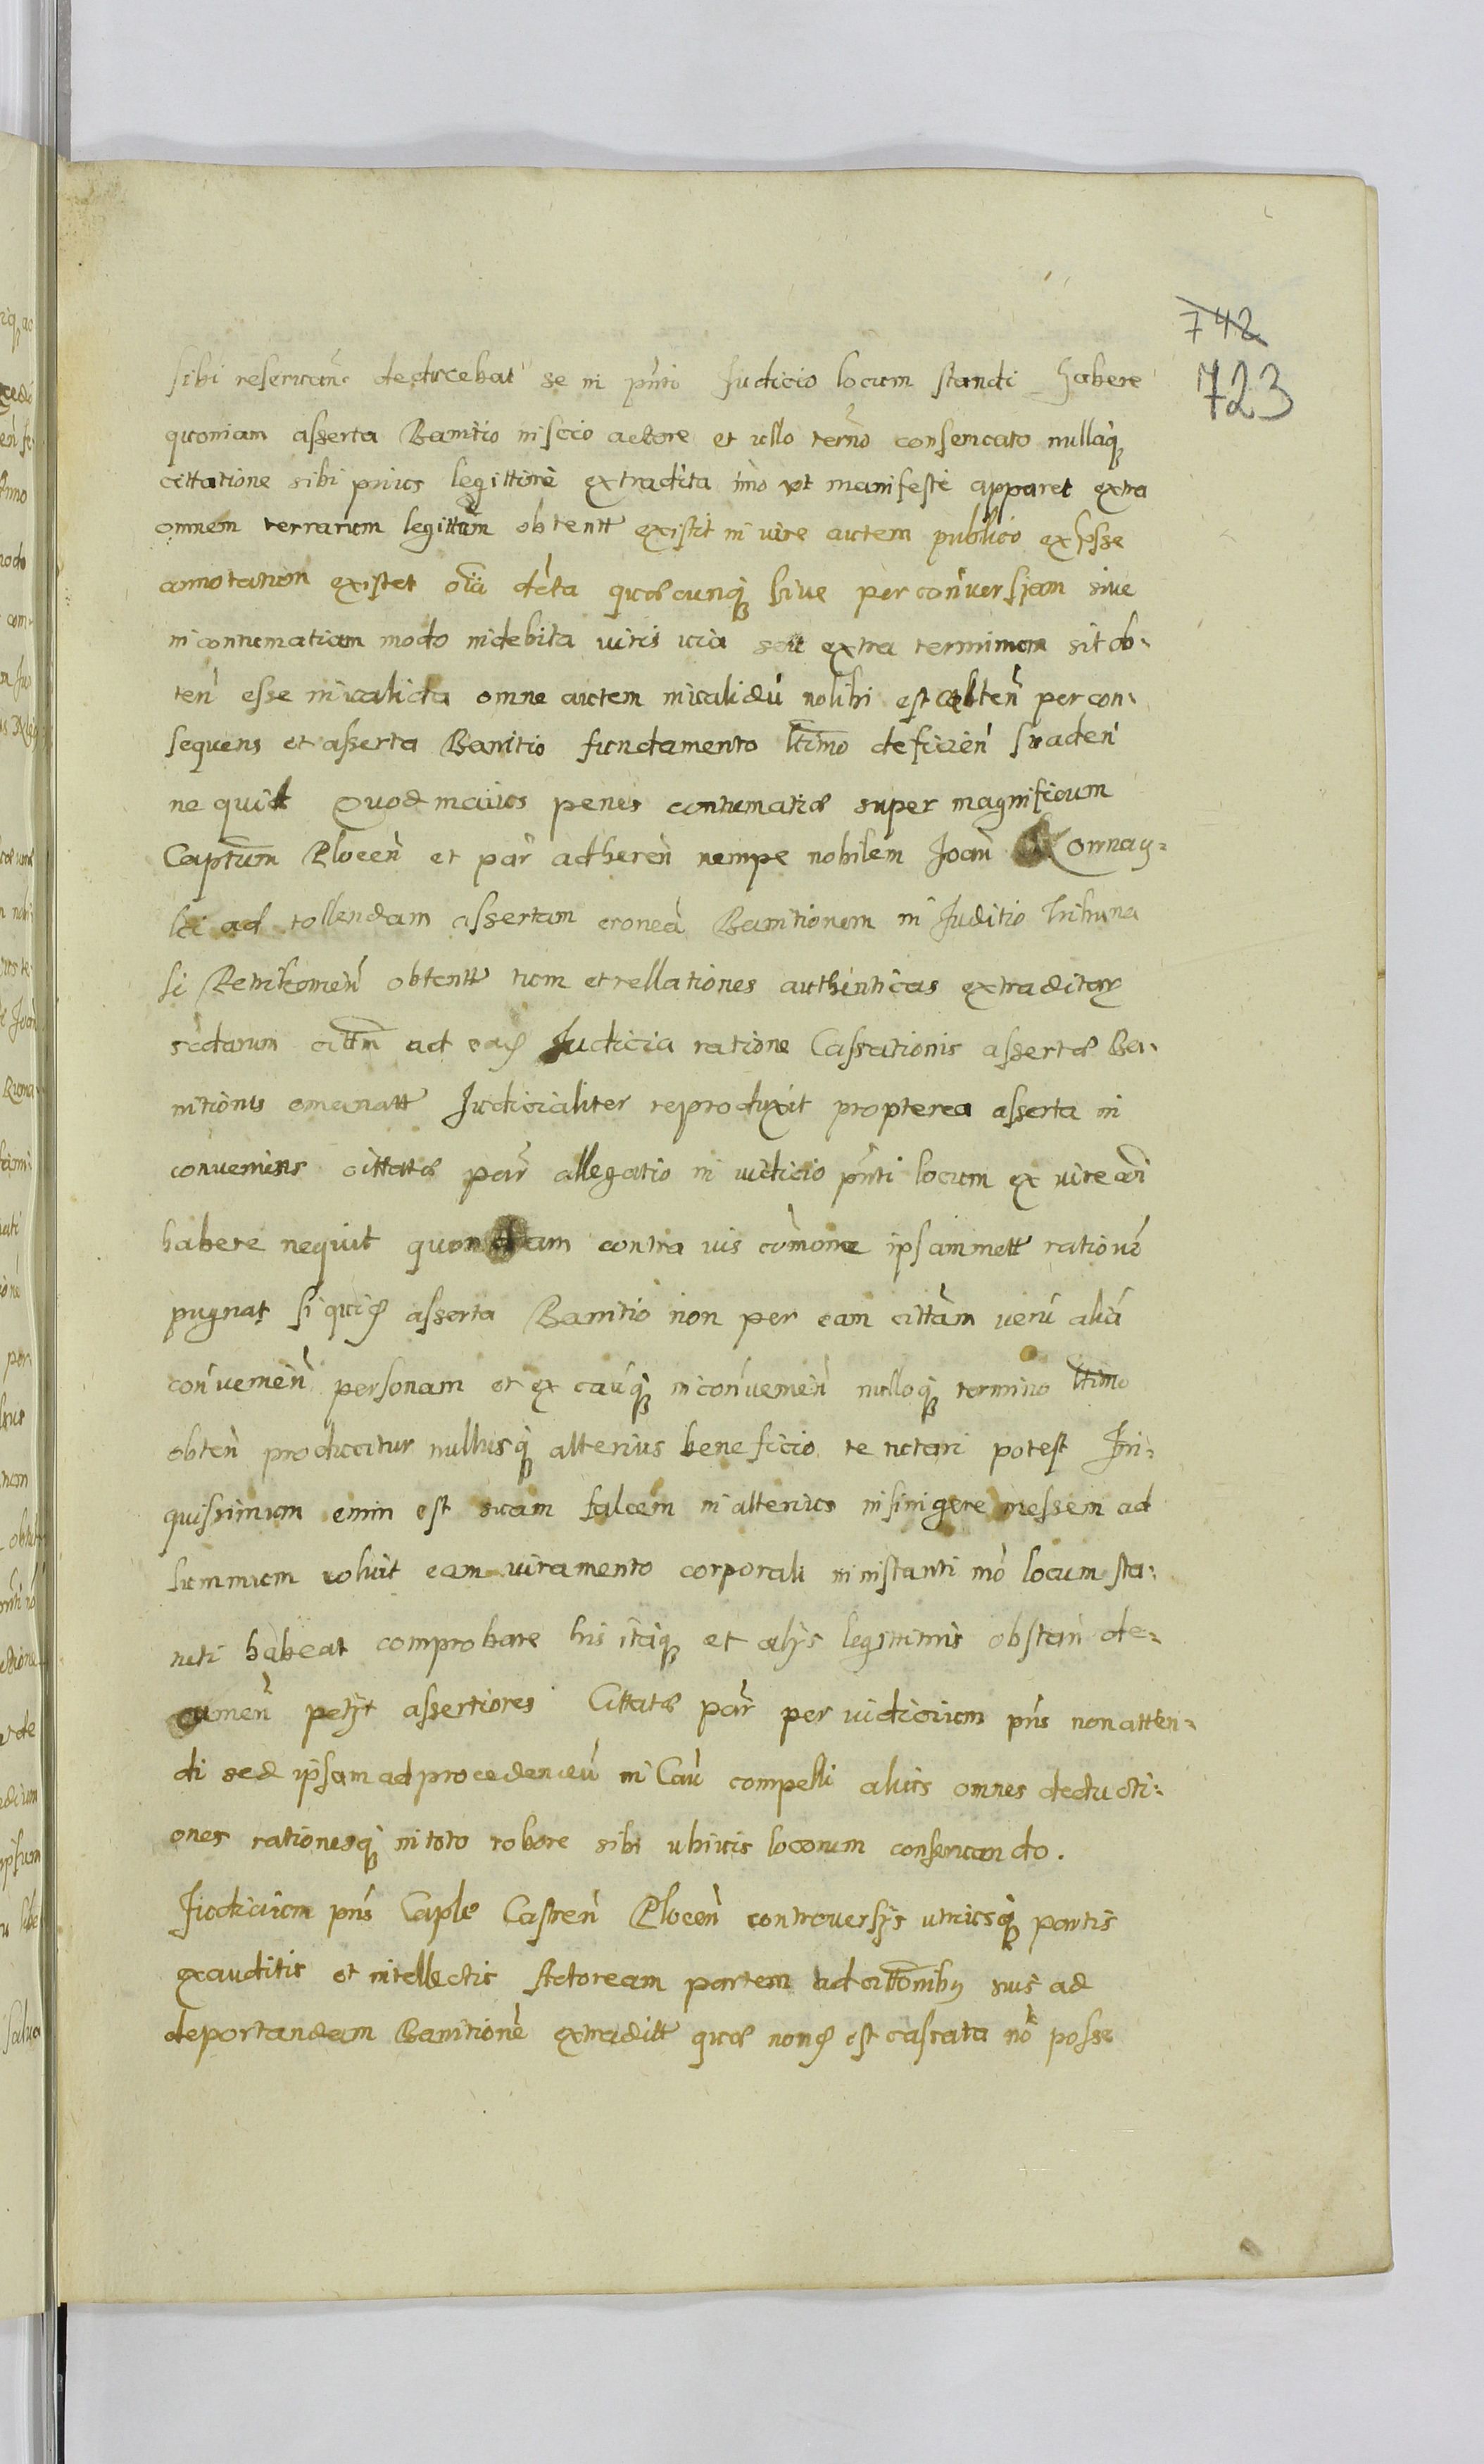 742
723
sibi reseruan̄ deducebat se in pn̄ti Judicio locum standi habere
quoniam asserta Banitio inscio actore et ullo termō conseruato nullaq̨
cittatione sibi prius legittimè extradita imo ut manifestè apparet extra
omnem terrarum legittam obtentt existit in iure autem publico exp̄sse
annotatum existet oīa dēta quæcunq̨ siue per conuersiam siue
in contumatiam modo indebita iuris uia seu extra terminum sit ob-
ten̄ esse inualida omne autem inualidū nolibi est obten̄ per con-
sequens et asserta Banitio fundamento ltimo deficien̄ suaden̄
ne quid quod maius penes contumatiæ super magnificum
Captum Plocen̄ et par̄ adheren̄ nempe nobilem Joan̄ Komnag-
ki ad tollendam assertam eroneā Banitionem in Juditio Tribuna
li Petrikouien̄ obtentt tum et rellationes authenticas extraditar
sedarum cittm ad eaq Judicia ratione Cassationis assertæ Ba-
nitionis emanatt Judicialiter reproduxit propterea asserta in
conueniens cittatæ par̄ allegatio in iudicio pn̄ti locum ex iure
habere nequit quondam contra ius comone ipsammett rationē
pugnat siquiq asserta Banitio non per eam cittam uerū aliā
conuenien̄ personam et ex cauq̨ inconuenien̄ nulloq̨ termino ltimo
obten̄ producitur nulliusq̨ alterius beneficio te nutari potest Ini-
quissimum enim est suam falcem in alterius infingere messem ad
summum voluit eam iuramento corporali in instanti mō locum sta-
nti habeat comprobare his itaq̨ et alijs legittimis obstan̄ de-
cumen̄ petijt assertiores Cittatæ par̄ per iudicium pn̄s non atten-
di sed ipsam ad procedendū in Cau compelli aliùs omnes deducti-
ones rationesq̨ in toto robore sibi ubiuis locorum conseruando.
Judicium pn̄s Caple Castren̄ Plocen̄ controuersijs utriusq̨ partis
exauditis et intellectis Actoream partem ad cittonibq suis ad
deportandam Banitionē extraditt quæ nonq est cassata nō posse